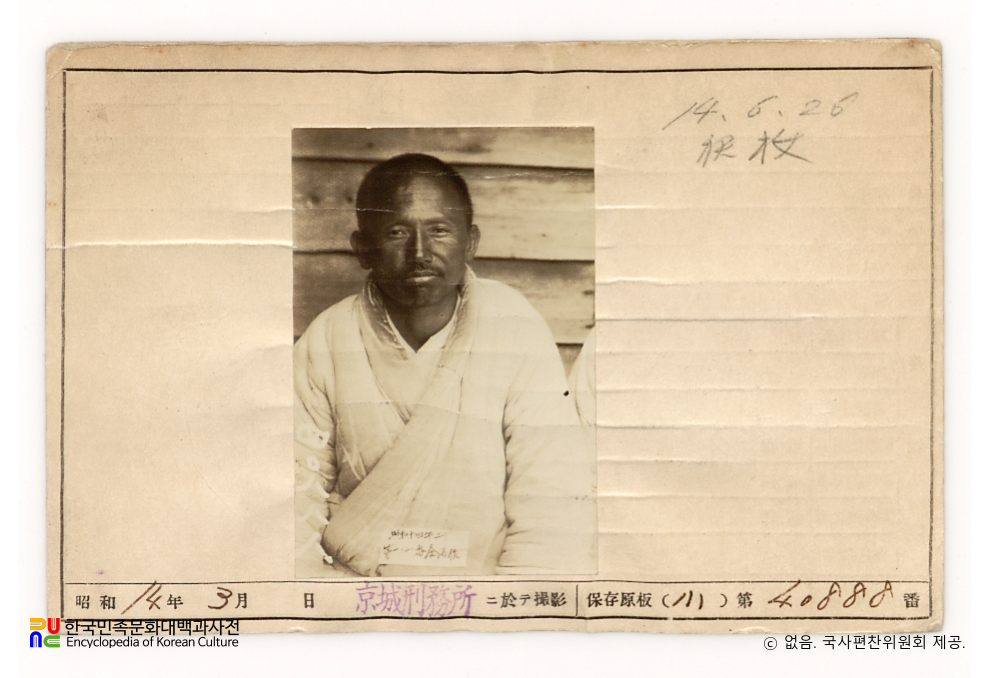 14. 6. 26
検枚
昭和 14年 3月 日 京城刑務所 ニ於テ撮影 保存原板( )第 40888 番
한국민족문화대백과사전
Encyclopedia of Korean Culture
© 없음. 국사편찬위원회 제공.